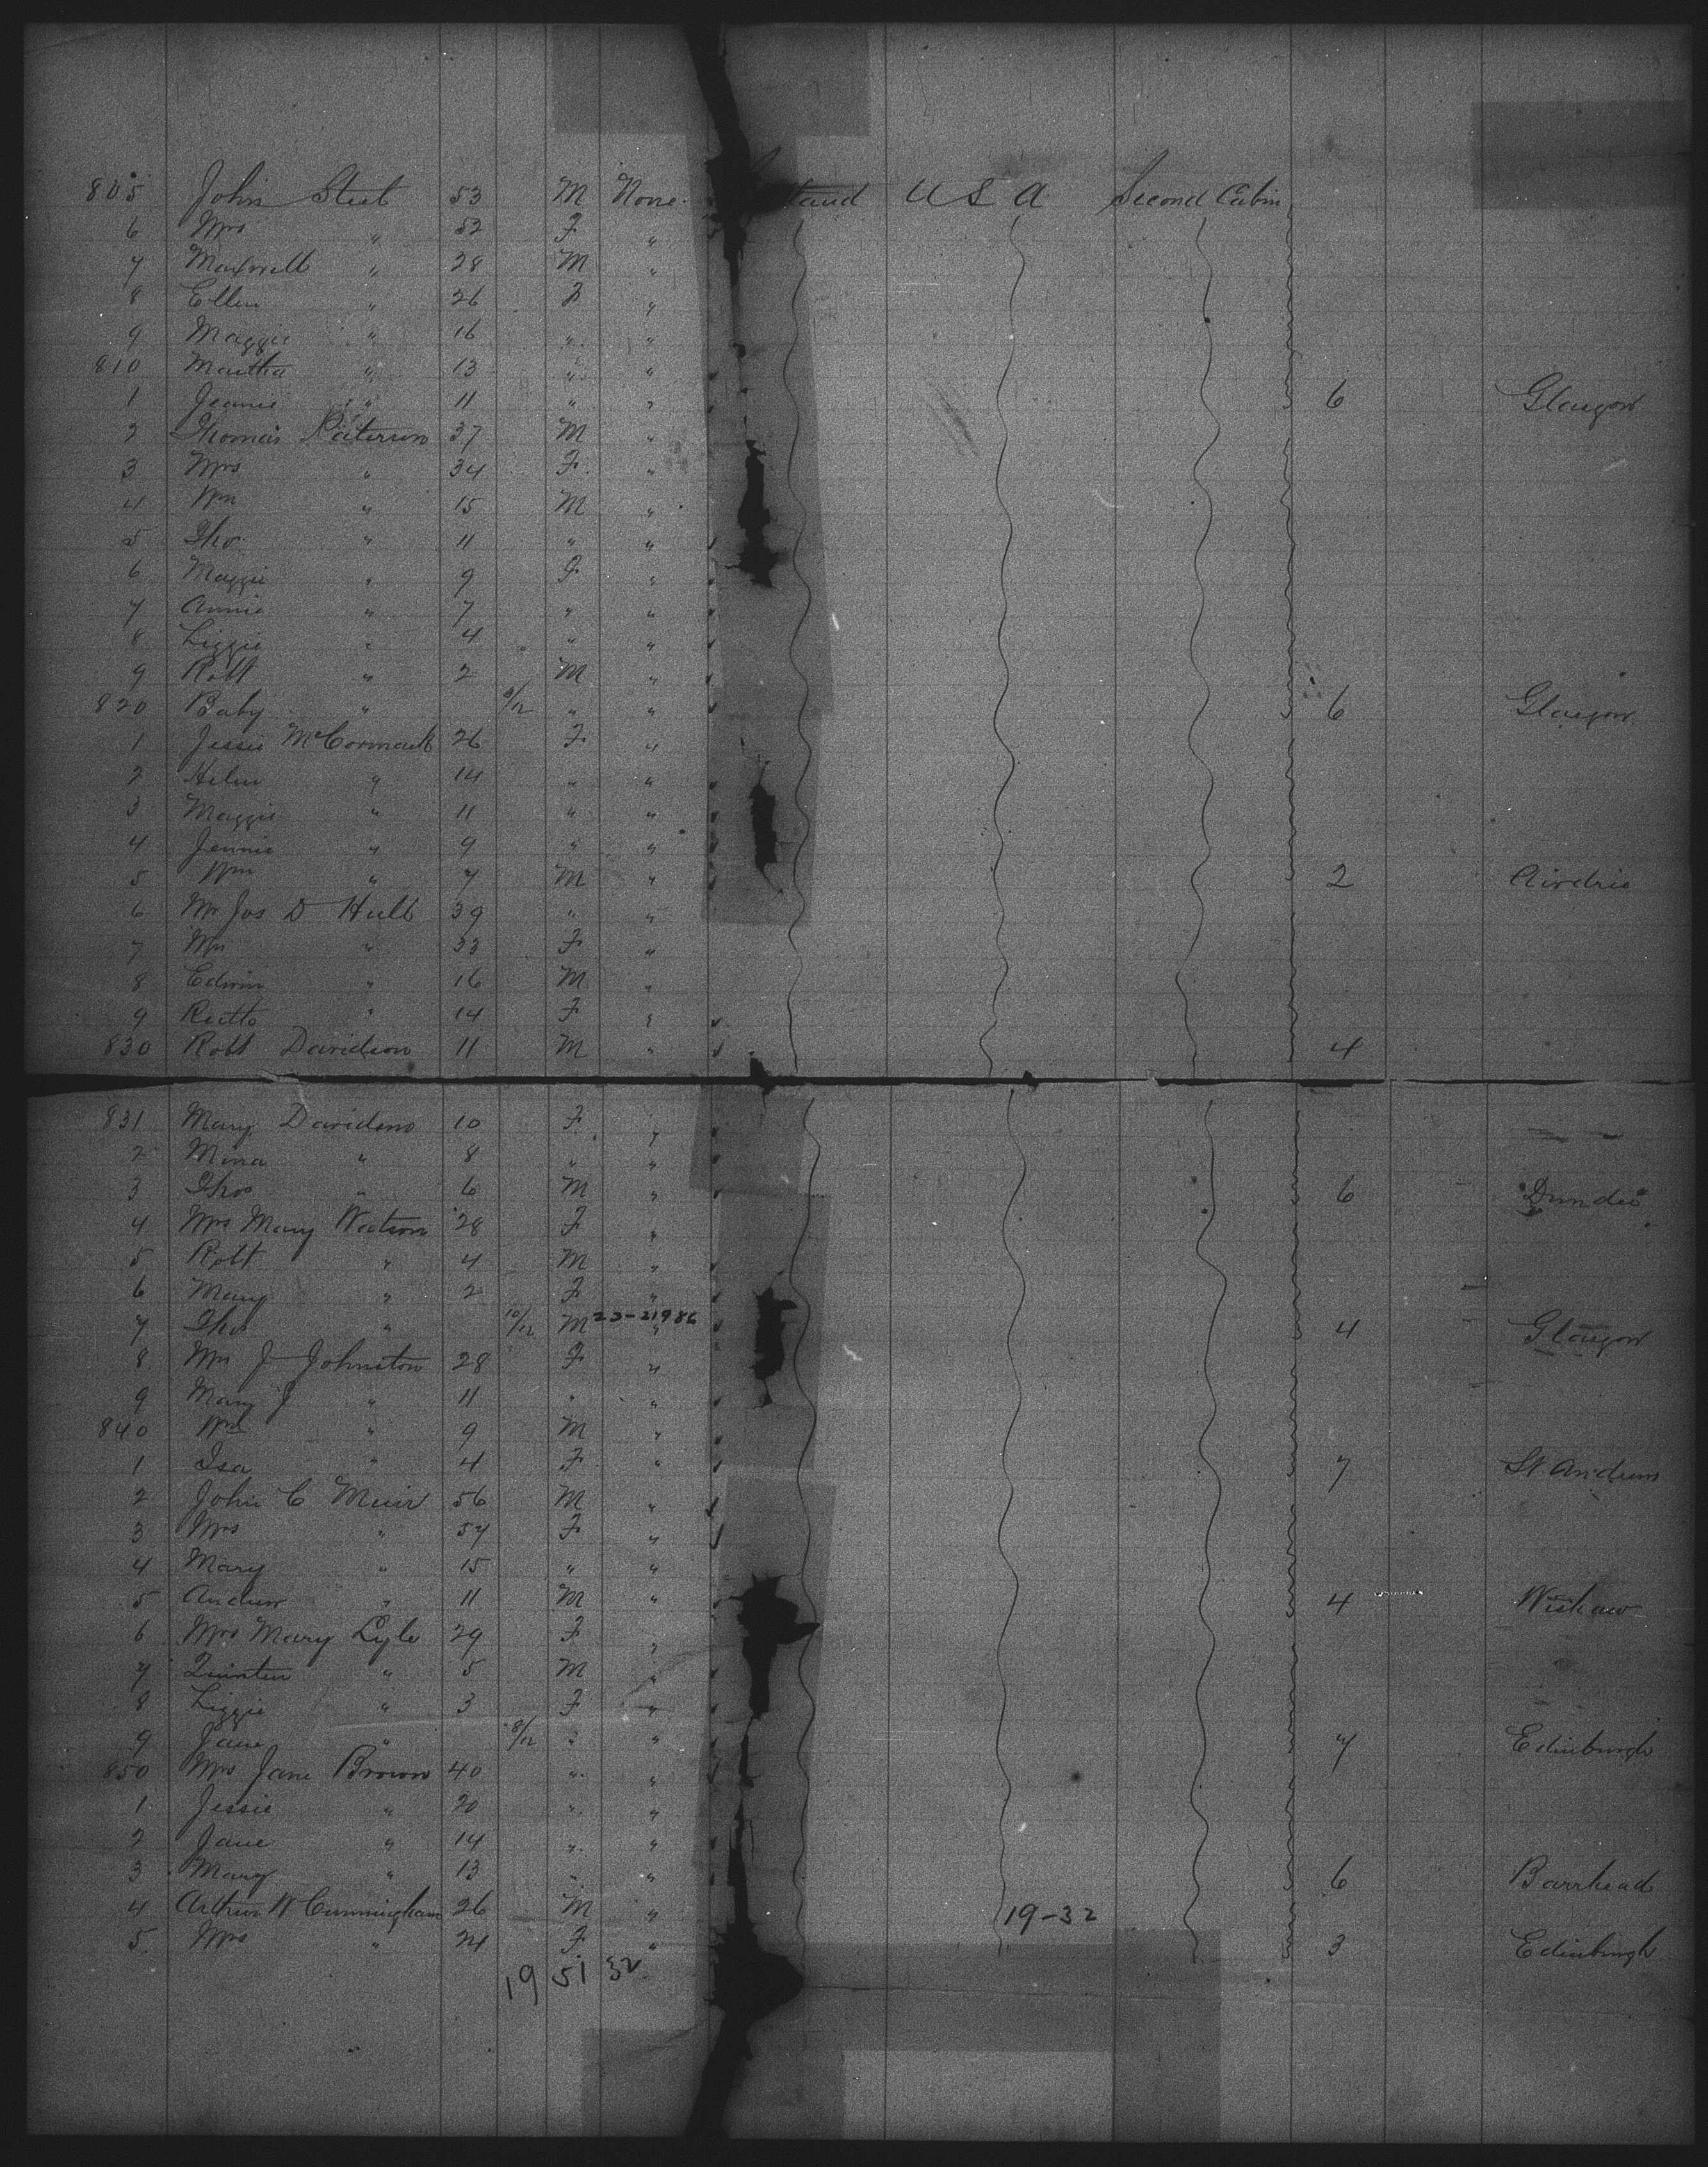 805 John Steel 53 M None tland U S A Second Cabin
6 Mrs " 52 F "
7 Maxwell " 28 M "
8 Ellen " 26 F "
9 Maggie " 16 " "
810 Martha " 13 " "
1 Jeanie " 11 " " 6 Glasgow
2 Thomas Paterson 37 M "
3 Mrs " 34 F "
4 Wm " 15 M "
5 Tho " 11 " "
6 Maggie " 9 F "
7 Annie " 7 " "
8 Lizzie " 4 " "
9 Robt " 2 M "
820 Baby " /12 " " 6 Glasgow
1 Jessie McCormack 26 F "
2 Helen " 14 " "
3 Maggie " 11 " "
4 Jennie " 9 " "
5 Wm " 7 M " 2 Airdrie
6 Mr Jos D Hull 39 " "
7 Mrs " 33 F "
8 Edwin " 16 M "
9 " 14 F "
830 Robt Davidson 11 M " 4
831 Mary Davidson 10 F "
2 Mina " 8 " "
3 Thos " 6 M " 6 Dundee
4 Mrs Mary Watson 28 F "
5 Robt " 4 M "
6 Mary " 2 F "
7 Thos " 10/12 M 23-21986 " 4 Glasgow
8 Mrs J Johnston 28 F "
9 Mary J " 11 " "
840 Wm " 9 M "
1 Isa " 4 F " 7 St Andrews
2 John C Muir 56 M "
3 Mrs " 54 F "
4 Mary " 15 " "
5 Andrew " 11 M " 4 Wishaw
6 Mrs Mary Lyle 29 F "
7 Quinten " 5 M "
8 Lizzie " 3 F "
9 Jane " 8/12 " " 7 Edinburgh
850 Mrs Jane Brown 40 " "
1 Jessie " 20 " "
2 Jane " 14 " "
3 Mary " 13 " " 6 Barrhead
4 Arthur W Cunningham 26 M " 19-32
5 Mrs " 24 F " 3 Edinburgh
19 51 32